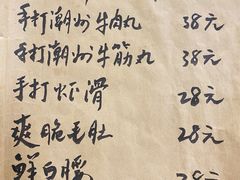 手打潮州牛肉丸 38元
手打潮州牛筋丸 38元
手打虾滑 28元
爽脆毛肚 28元
鲜白 28元